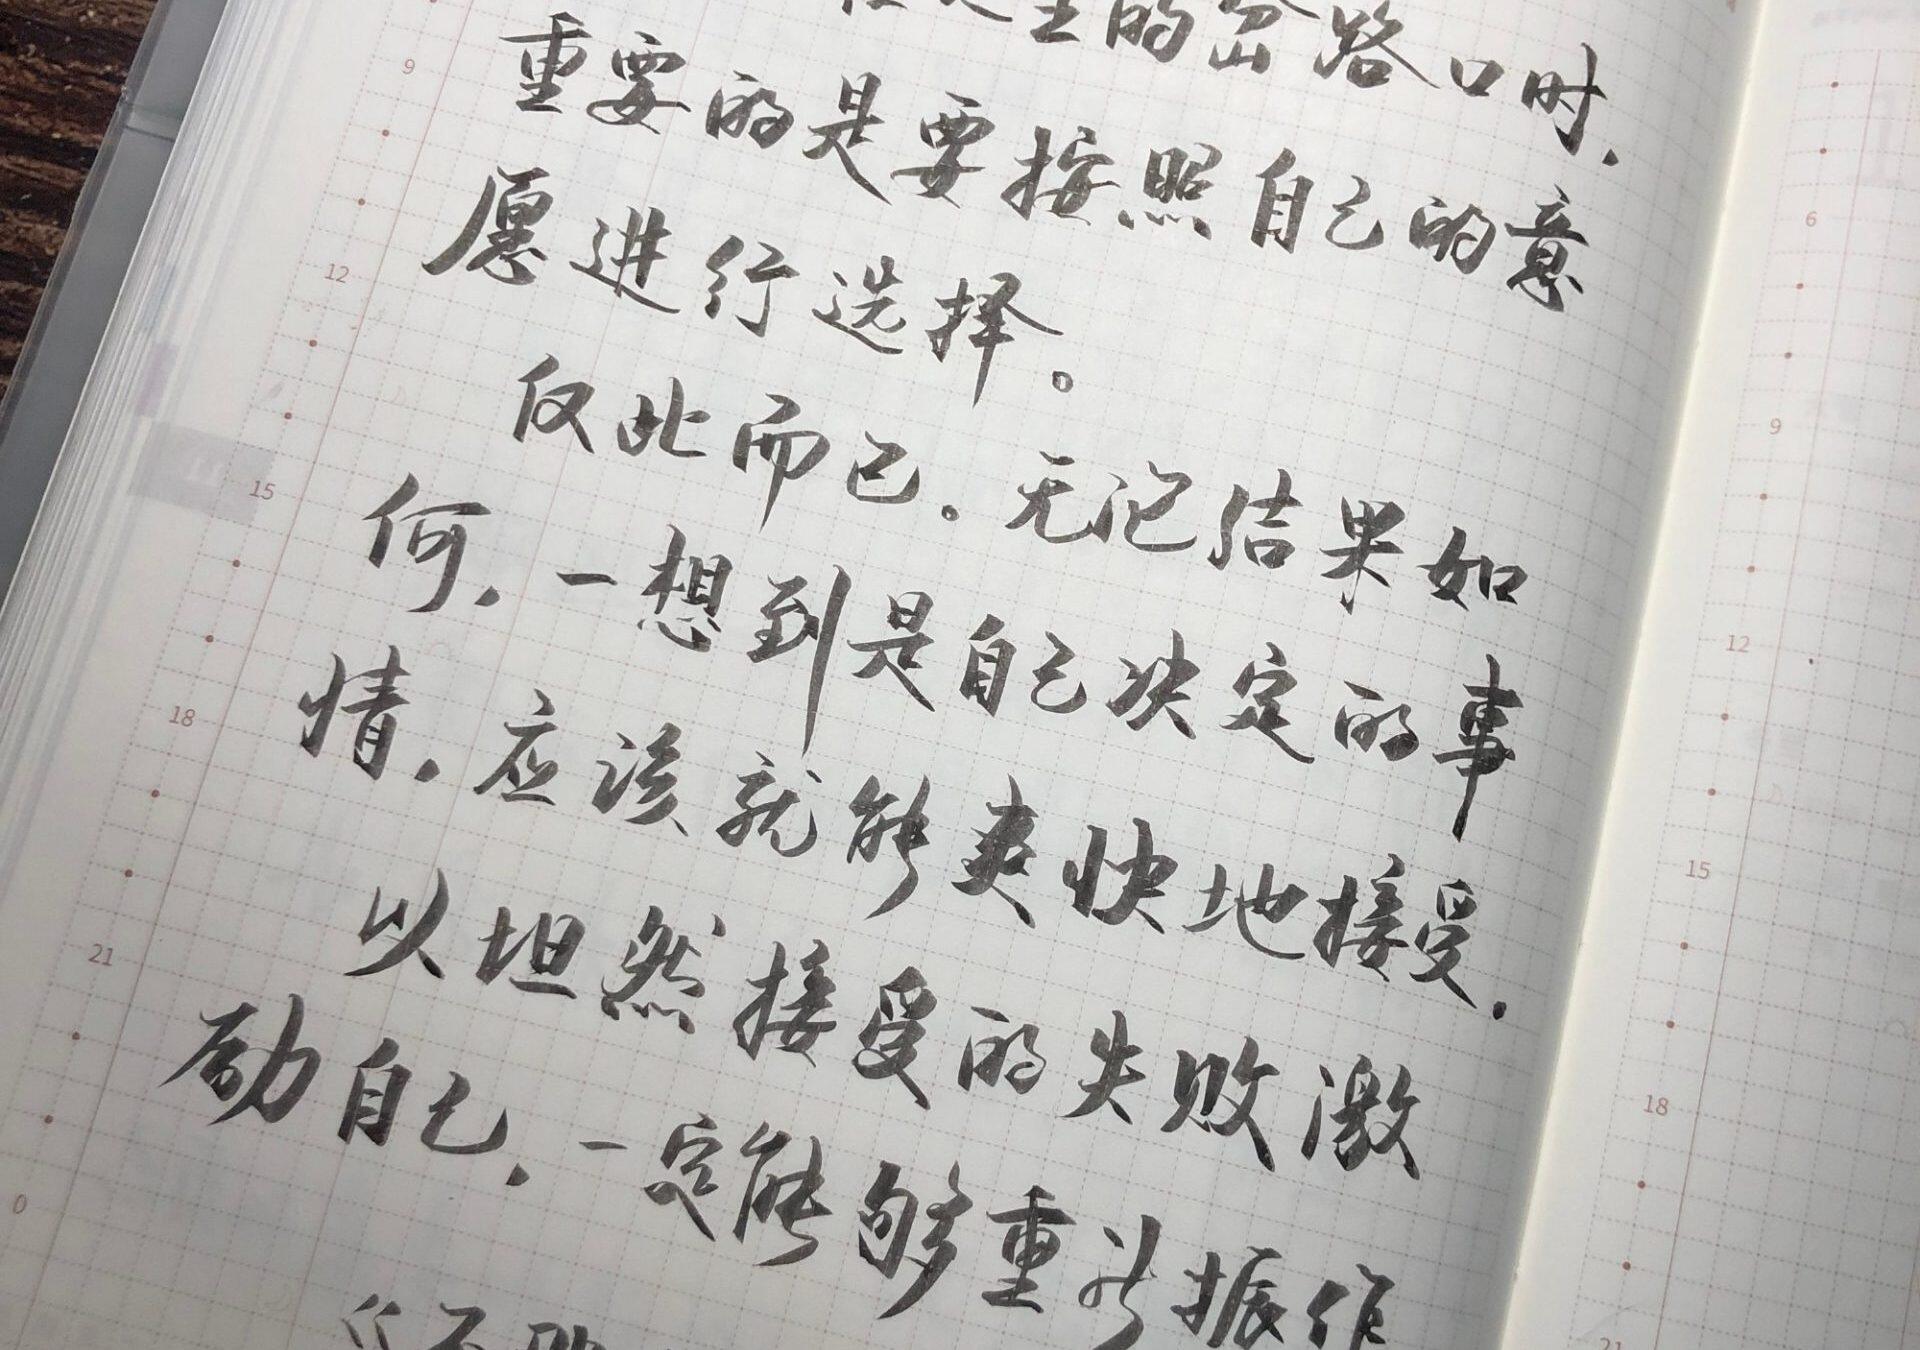 的岔路口时，
重要的是要按照自己的意
愿进行选择。
仅此而已。无论结果如
何，一想到是自己决定的事
情，应该就能爽快地接受，
以坦然接受的失败激
励自己，一定能够重新振作
9
12
15
18
21
0
6
9
12
15
18
21